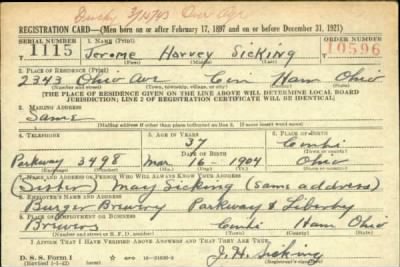 3/14/43 Over Age
REGISTRATION CARD—(Men born on or after February 17, 1897 and on or before December 31, 1921)
SERIAL NUMBER 1. NAME (Print) ORDER NUMBER
1115 Jerome Harvey Sicking 10596
(First) (Middle) (Last)
2. PLACE OF RESIDENCE (Print)
2343 Ohio Ave Cin Ham Ohio
(Number and street) (Town, township, village, or city) (County) (State)
[THE PLACE OF RESIDENCE GIVEN ON THE LINE ABOVE WILL DETERMINE LOCAL BOARD
JURISDICTION; LINE 2 OF REGISTRATION CERTIFICATE WILL BE IDENTICAL]
3. MAILING ADDRESS
Same
[Mailing address if other than place indicated on line 2. If same insert word same]
4. TELEPHONE 5. AGE IN YEARS 6. PLACE OF BIRTH
37 Cinti
DATE OF BIRTH
Parkway 3498 Mar 16 - 1904 Ohio
7. NAME AND ADDRESS OF PERSON WHO WILL ALWAYS KNOW YOUR ADDRESS
(Sister) May Sicking (same address)
8. EMPLOYER'S NAME AND ADDRESS
Burger Brewery Parkway & Liberty
9. PLACE OF EMPLOYMENT OR BUSINESS
Brewers Cinti Ham Ohio
(Number and street or R. F. D. number) (Town) (County) (State)
I AFFIRM THAT I HAVE VERIFIED ABOVE ANSWERS AND THAT THEY ARE TRUE.
D. S. S. Form 1
J. H. Sicking
(Registrant's signature)